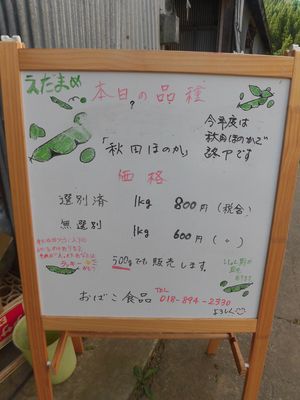 えだまめ
本日の品種
?
「秋田ほのか」
今年度は
秋田ほのかで
終了です
価格
選別済 1kg 800円(税合)
無選別 1kg 600円(〃)
500gでも販売します。
ラッキー
おばこ食品 TEL 018-894-2330
よろしく♡